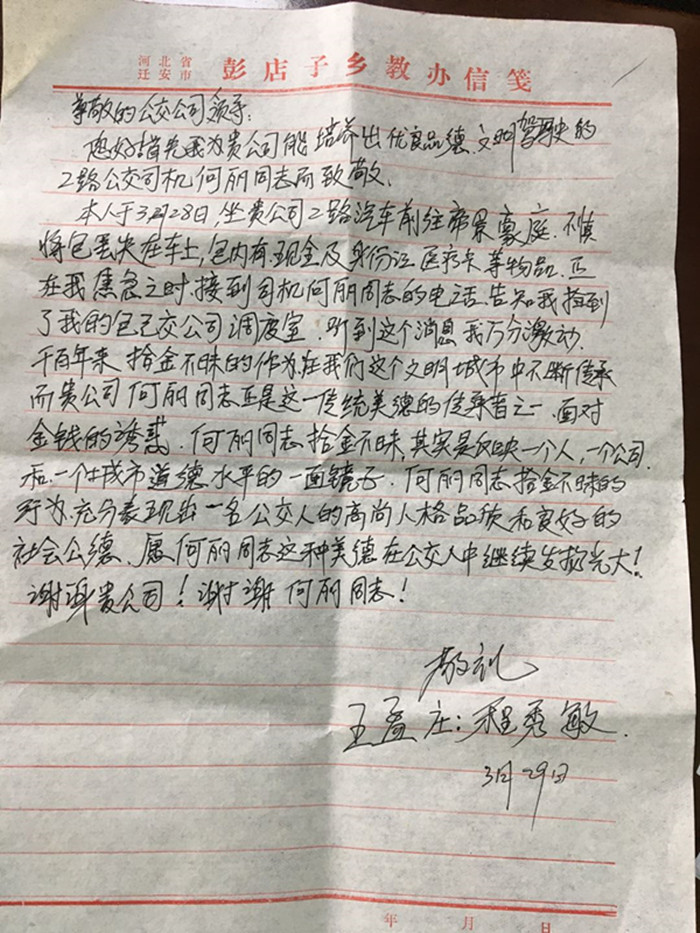 河北省
迁安市 彭店子乡教办信笺
尊敬的公交公司领导:
您好!首先我为贵公司能培养出优良品德、文明驾驶的
2路公交司机何丽同志而致敬、
本人于3月28日,坐贵公司2路汽车前往帝景豪庭、不慎
将包丢失在车上,包内有现金及身份证、医疗卡等物品、正
在我焦急之时、接到司机何丽同志的电话、告知我捡到
了我的包已交公司调度室、听到这个消息我万分激动、
千百年来拾金不昧的作为、在我们这个文明城市中不断传承
而贵公司何丽同志正是这一传统美德的传承者之一、面对
金钱的诱惑、何丽同志拾金不昧,其实是反映一个人,一个公司、
和一个城市道德水平的一面镜子、何丽同志拾金不昧的
行为、充分表现出一名公交人的高尚人格品质和良好的
社会公德、愿何丽同志这种美德在公交人中继续发扬光大!
谢谢贵公司!谢谢何丽同志!
敬礼
王孟庄:程秀敏、
3月29日
年 月 日